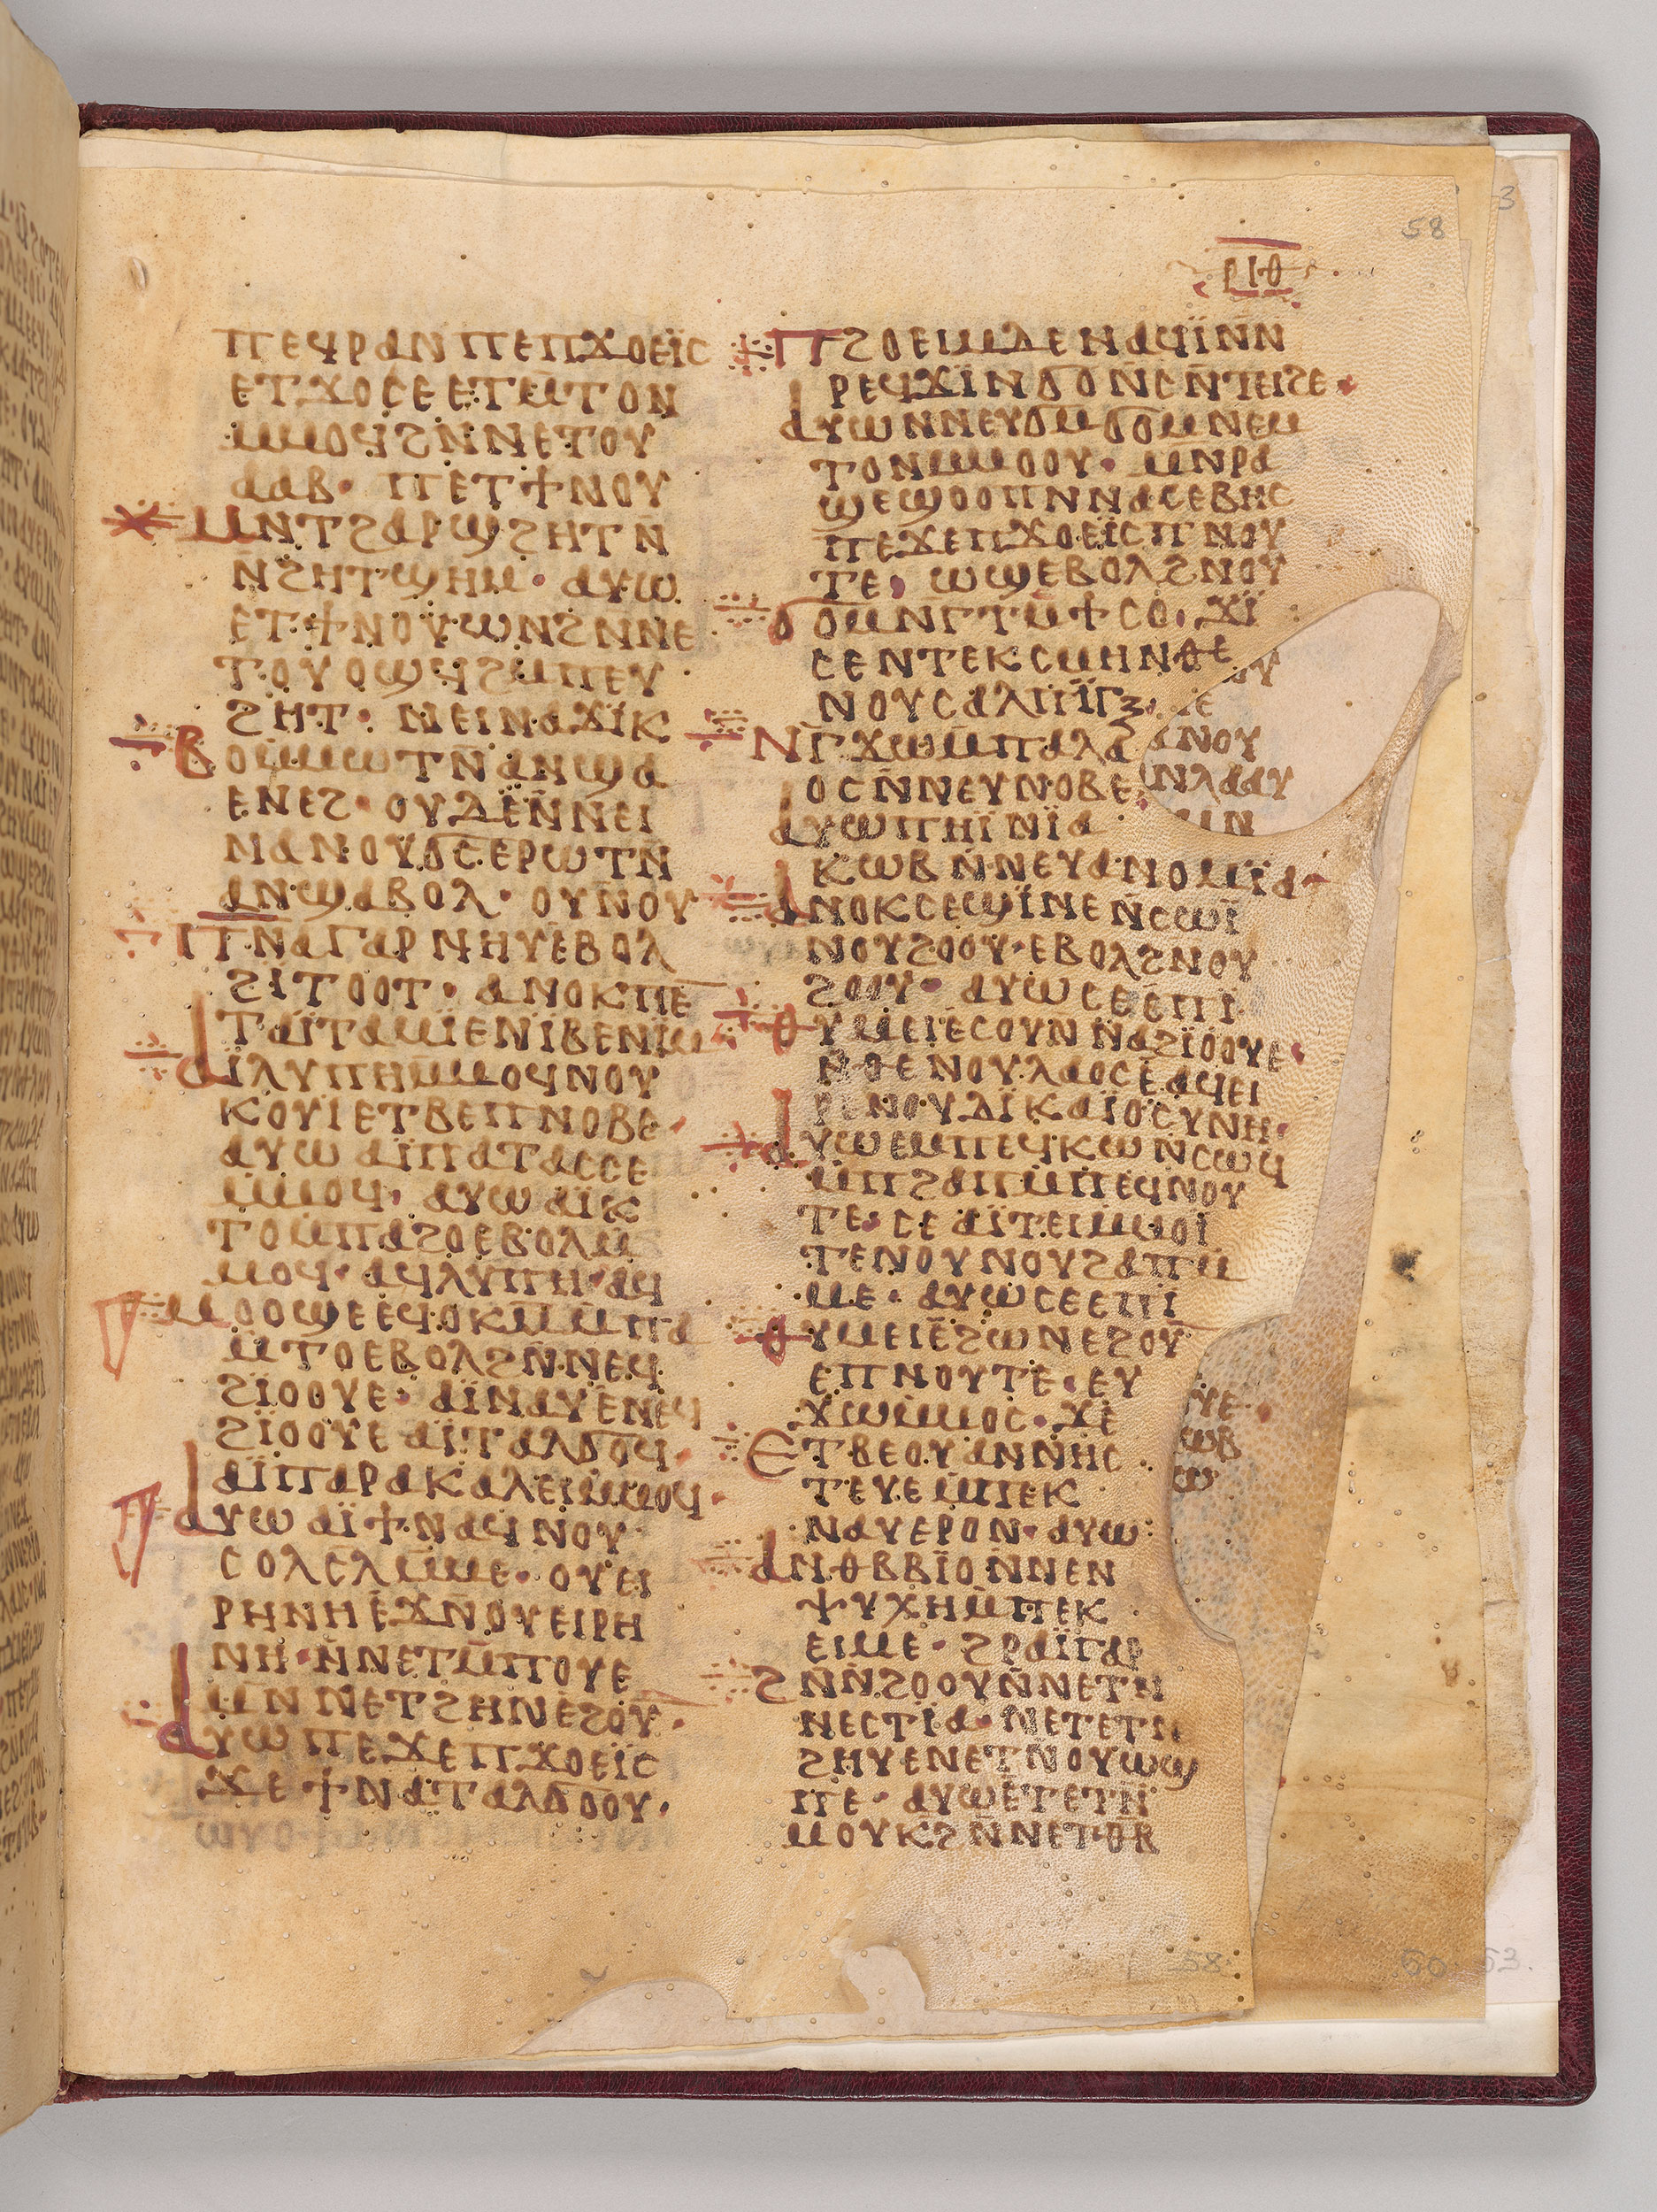 58
ⲣⲓⲑ
ⲡⲉϥⲣⲁⲛ ⲡⲉ ⲡϫⲟⲉⲓ̈ⲥ
ⲉⲧϫⲟⲥⲉ ⲉⲧⲙ̄ⲧⲟⲛ
ⲙ̄ⲙⲟϥ ϩⲛ̄ ⲛⲉⲧⲟⲩ
ⲁⲁⲃ· ⲡⲉⲧϯ ⲛⲟⲩ
ⲙⲛⲧϩⲁⲣϣϩⲏⲧ ⲛ̄
ⲛ̄ϩⲏⲧϣⲏⲙ· ⲁⲩⲱ
ⲉⲧϯ ⲛⲟⲩⲱⲛϩ ⲛ̄ⲛⲉ
ⲧⲟⲩⲟϣϥ ϩⲙ ⲡⲉⲩ
ϩⲏⲧ· ⲛⲉⲓⲛⲁϫⲓ̈ⲕ
ⲃⲟⲙ̄ⲙⲱⲧⲛ̄ ⲁⲛ ϣⲁ
ⲉⲛⲉϩ· ⲟⲩⲇⲉ ⲛ̄ⲛⲉⲓ
ⲛⲁⲛⲟⲩϭⲥ ⲉⲣⲱⲧⲛ̄
ⲁⲛ ϣⲁⲃⲟⲗ· ⲟⲩⲛⲟⲩ
ⲡⲛ̄ⲁ ⲅⲁⲣ ⲛⲏⲩ ⲉⲃⲟⲗ
ϩⲓⲧⲟⲟⲧ· ⲁⲛⲟⲕ ⲡⲉ
ⲛ̄ⲧⲁⲓ̈ⲧⲁⲙⲓ̈ⲉ ⲛⲓⲃⲉ ⲛⲓⲙ
ⲁⲓ̈ⲗⲩⲡⲏ ⲙ̄ⲙⲟϥ ⲛⲟⲩ
ⲕⲟⲩⲓ̈ ⲉⲧⲃⲉ ⲡⲛⲟⲃⲉ·
ⲁⲩⲱ ⲁⲓ̈ⲡⲁⲧⲁⲥⲥⲉ
ⲙ̄ⲙⲟϥ· ⲁⲩⲱ ⲁⲓ̈ⲕ
ⲧⲟ ⲙ̄ⲡⲁϩⲟ ⲉⲃⲟⲗ ⲙ̄
ⲙⲟϥ· ⲁϥⲗⲩⲡⲏ· ⲁϥ
ⲙⲟⲟϣⲉ ⲉϥⲟⲕⲙ̄ ⲙ̄ⲡⲁ
ⲙ̄ⲧⲟ ⲉⲃⲟⲗ ϩⲛ̄ ⲛⲉϥ
ϩⲓ̈ⲟⲟⲩⲉ· ⲁⲓ̈ⲛⲁⲩ ⲉⲛⲉϥ
ϩⲓ̈ⲟⲟⲩⲉ ⲁⲓ̈ⲧⲁⲗϭⲟϥ·
ⲁⲓ̈ⲡⲁⲣⲁⲕⲁⲗⲉⲓ ⲙ̄ⲙⲟϥ·
ⲁⲩⲱ ⲁⲓ̈ϯ ⲛⲁϥ ⲛⲟⲩ
ⲥⲟⲗⲥⲗ ⲙ̄ⲙⲉ· ⲟⲩⲉⲓ
ⲣⲏⲛⲏ ⲉϫⲛ̄ ⲟⲩⲉⲓⲣⲏ
ⲛⲏ· ⲛ̄ⲛⲉⲧⲙ̄ⲡⲟⲩⲉ
ⲙⲛ̄ ⲛⲉⲧϩⲏⲛ ⲉϩⲟⲩ·
ⲁⲩⲱ ⲡⲉϫⲉ ⲡϫⲟⲉⲓ̈ⲥ
ϫⲉ ϯⲛⲁⲧⲁⲗϭⲟⲟⲩ·
ⲡϩⲟⲉⲓⲙ ⲇⲉ ⲛⲁϥⲓ̈ ⲛ̄ⲛ̄
ⲣⲉϥϫⲓ̈ ⲛϭⲟⲛⲥ ⲛ̄ⲧⲉⲓϩⲉ·
ⲁⲩⲱ ⲛⲛⲉⲩϭⲙϭⲟⲙ ⲛⲉⲙ
ⲧⲟⲛ ⲙ̄ⲙⲟⲟⲩ· ⲙⲛ ⲣⲁ
ϣⲉ ϣⲟⲟⲡ ⲛⲛⲁⲥⲉⲃⲏⲥ
ⲡⲉϫⲉ ⲡϫⲟⲉⲓ̈ⲥ ⲡⲛⲟⲩ
ⲧⲉ· ⲱϣ ⲉⲃⲟⲗ ϩⲛ ⲟⲩ
ϭⲟⲙ ⲛⲅⲧⲙ̄ϯⲥⲟ· ϫⲓ̈
ⲥⲉ ⲛⲧⲉⲕⲥⲙⲏ ⲛⲑⲉ
ⲛⲟⲩⲥⲁⲗⲡⲓ̈ⲅⲝ·
ⲛⲅ̄ϫⲱ ⲙ̄ⲡⲁⲗⲁ
ⲟⲥ ⲛ̄ⲛⲉⲩⲛⲟⲃⲉ
ⲁⲩⲱ ⲡⲏⲓ̈ ⲛ̄ⲓ̈ⲁ
ⲕⲱⲃ ⲛ̄ⲛⲉⲩⲁⲛⲟⲙⲓ̈ⲁ·
ⲁⲛⲟⲕ ⲥⲉϣⲓ̈ⲛⲉ ⲛⲥⲱⲓ̈
ⲛⲟⲩϩⲟⲟⲩ· ⲉⲃⲟⲗ ϩⲛ ⲟⲩ
ϩⲟⲟⲩ· ⲁⲩⲱ ⲥⲉⲉⲡⲓ
ⲑⲩⲙⲉⲓ ⲉⲥⲟⲩⲛ ⲛⲁϩⲓ̈ⲟⲟⲩⲉ·
ⲛ̄ⲑⲉ ⲛⲟⲩⲗⲁⲟⲥ ⲉⲁϥⲉⲓ
ⲣⲉ ⲛⲟⲩⲇⲓ̈ⲕⲁⲓ̈ⲟⲥⲩⲛⲏ·
ⲁⲩⲱ ⲉⲙⲡⲉϥⲕⲱ ⲛ̄ⲥⲱϥ
ⲙ̄ⲡϩⲁⲡ ⲙ̄ⲡⲉϥⲛⲟⲩ
ⲧⲉ· ⲥⲉⲁⲓ̈ⲧⲉⲓ ⲙ̄ⲙⲟⲓ̈
ⲧⲉⲛⲟⲩ ⲛⲟⲩϩⲁⲡ ⲙ̄
ⲙⲉ· ⲁⲩⲱ ⲥⲉⲉⲡⲓ̈
ⲑⲩⲙⲉⲓ ⲉϩⲱⲛ ⲉϩⲟⲩ
ⲉⲡⲛⲟⲩⲧⲉ· ⲉⲩ
ϫⲱ ⲙ̄ⲙⲟⲥ· ϫⲉ
ⲉⲧⲃⲉ ⲟⲩ ⲁⲛⲛⲏⲥ
ⲧⲉⲩⲉ ⲙ̄ⲡⲉⲕ
ⲛⲁⲩ ⲉⲣⲟⲛ· ⲁⲩⲱ
ⲁⲛⲑⲃⲃⲓ̈ⲟ ⲛⲛⲉⲛ
ⲯⲩⲭⲏ ⲙ̄ⲡⲉⲕ
ⲉⲓⲙⲉ· ϩⲣⲁⲓ̈ ⲅⲁⲣ
ϩⲛ̄ ⲛ̄ϩⲟⲟⲩ ⲛ̄ⲛⲉⲧⲛ
ⲛⲉⲥⲧⲓ̈ⲁ· ⲛⲉⲧⲉⲧⲛ
ϩⲏⲩ ⲉⲛⲉⲧⲛ̄ⲟⲩⲱϣ
ⲡⲉ· ⲁⲩⲱ ⲉⲧⲉⲧⲛ̄
ⲙⲟⲩⲕϩ ⲛ̄ⲛⲉⲧⲑⲃ
58